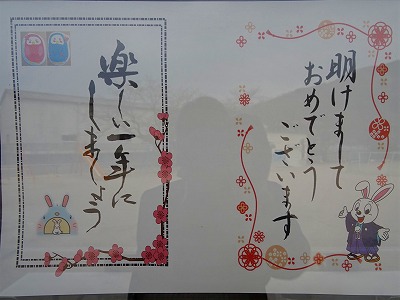 明けまして
おめでとう
ございます
楽しい一年に
しましょう